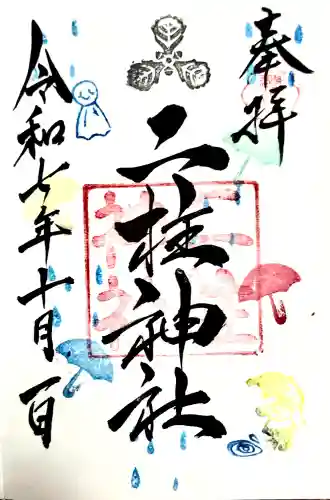 奉拝
二柱神社
令和七年十月一日